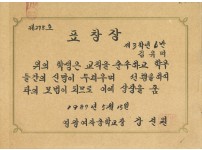 제278호
표창장
제3학년6반
김유미
위의 학생은 교칙을 준수하고 학우
들간의 신망이 두터우며 선행을 하여
타의 모범이 되므로 이에 상장을 줌
1987년 5월 15일
여자중학교장